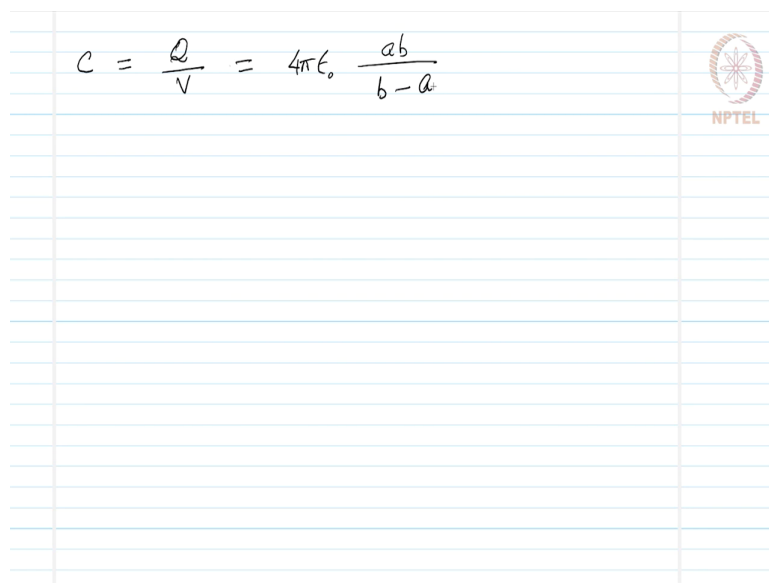 C = Q/V = 4πϵ₀ ab/(b − a)
NPTEL